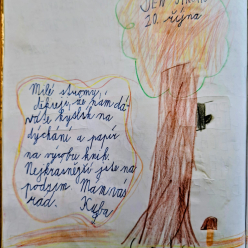 DEN
20. října
Milé stromy,
děkuji, že nám dá
váte kyslík na
dýchání a papír
na výrobu knih.
Nejkrásnější jste na
podzim. Mám vás
rád. Kuba